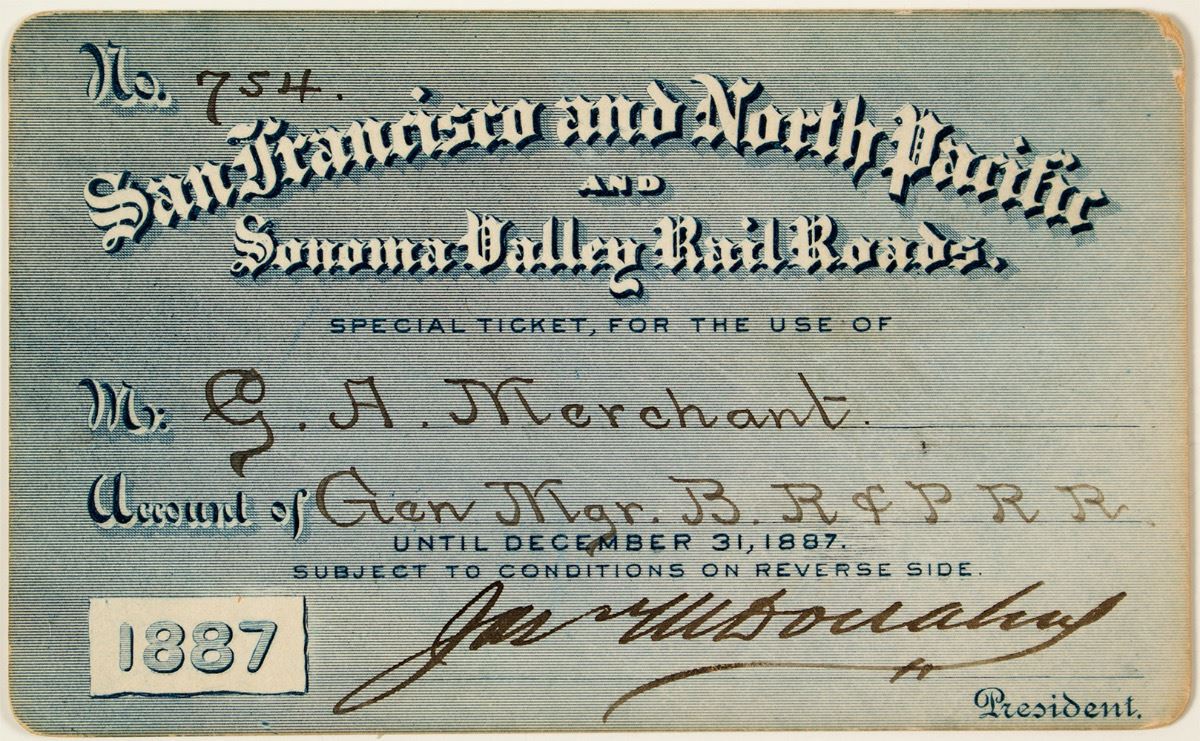 No. 754.
San Francisco and North Pacific
AND
Sonoma Valley Rail Roads.
SPECIAL TICKET, FOR THE USE OF
Mr. G. A. Merchant.
Account of Gen Mgr. B. R & P R R.
UNTIL DECEMBER 31, 1887.
SUBJECT TO CONDITIONS ON REVERSE SIDE.
1887
Jas McDonahue
President.